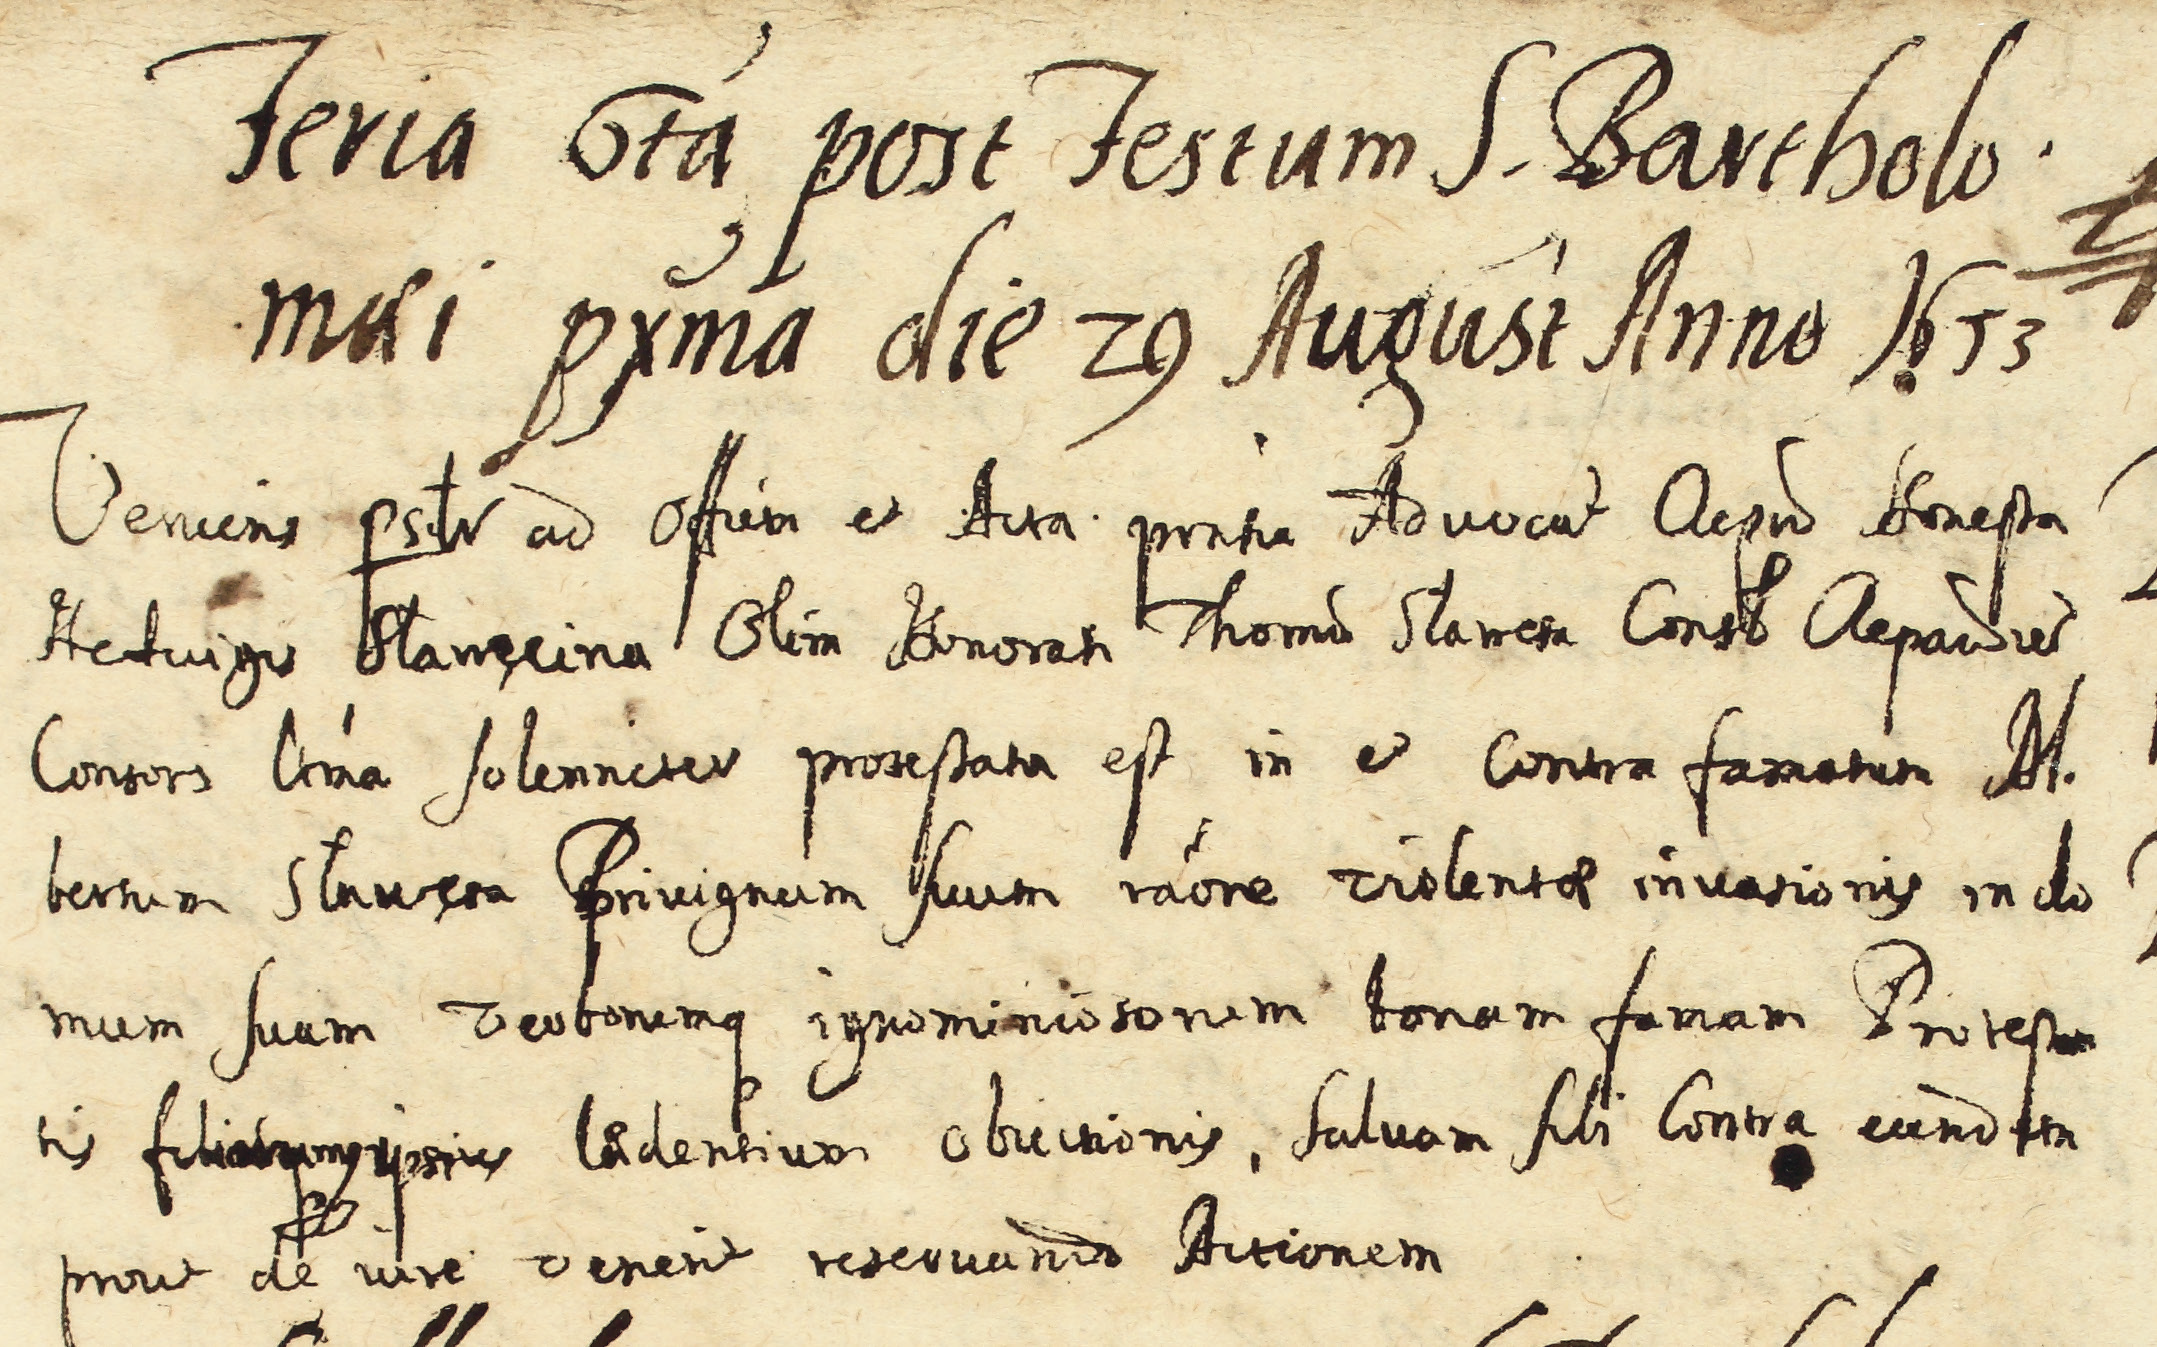 Feria 6ta post Festum S. Bartholo
mæi pxma die 29 August Anno 1653
Veniens psltr ad Offium et Acta pntia Advocat Oepid Honesta
Heduigis Slawęcina Olim Honorati Thomæ Slawęta Consl
Consors ltma solenniter protestata est in et contra famatum Al.
bertum Slawęta Privignum suum raõne violentæ invasionis in do
mum suam verborumq ignominiosorum bonam famam Protestan
tis ipsius lædentium obiectionis, saluam sibi contra eundem
prout de iure venerit reservando Actionem